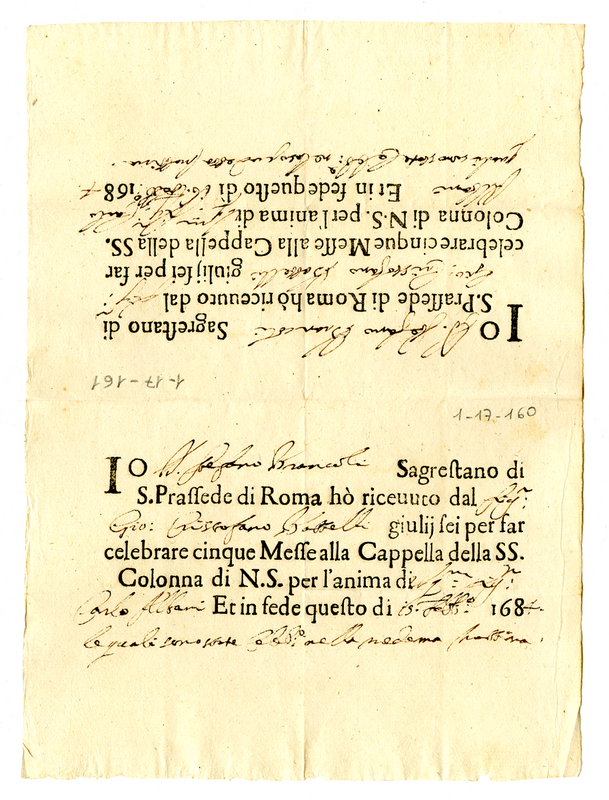 quali sono state
Albani Et in fede questo di 16. 168
Colonna di N.S. per l'anima di Carlo
celebrare cinque Messe alla Cappella della SS.
Gio: Cristofano Battelli giulij sei per far
S. Prassede di Roma hò riceuuto dal
IO D. Stefano Brancoli Sagrestano di
1-17-161
1-17-160
IO D. Stefano Brancoli Sagrestano di
S. Prassede di Roma hò riceuuto dal
Gio: Cristofano Battelli giulij sei per far
celebrare cinque Messe alla Cappella della SS.
Colonna di N.S. per l'anima di
Carlo Albani Et in fede questo di 15. 1684.
le quali sono state nella medema mattina.